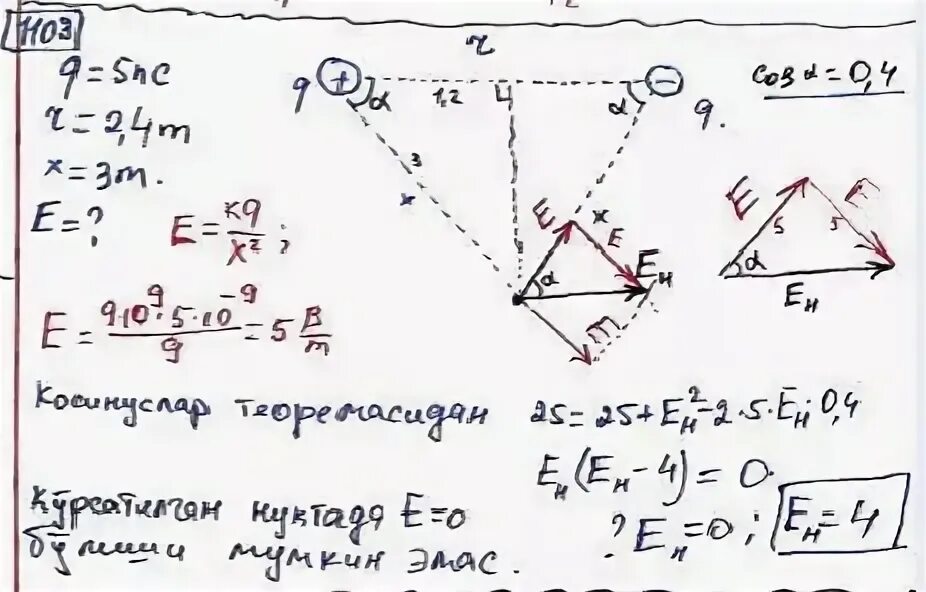 N03
q = 5nC
r = 2,4m
x = 3m.
E = ?
E = kq/x² ;
E = 9·10⁹·5·10⁻⁹/9 = 5 B/m
r
q + α 1,2 α − q.
3
x
x
E
E
α
E
Eн
cos α = 0,4
E 5 5 E
α
Eн
Косинуслар теоремасидан
25 = 25 + Eн² − 2·5·Eн·0,4
Eн(Eн − 4) = 0
? Eн = 0 ; Eн = 4
Кўрсатилган нуктада E=0
бўлиши мумкин эмас.